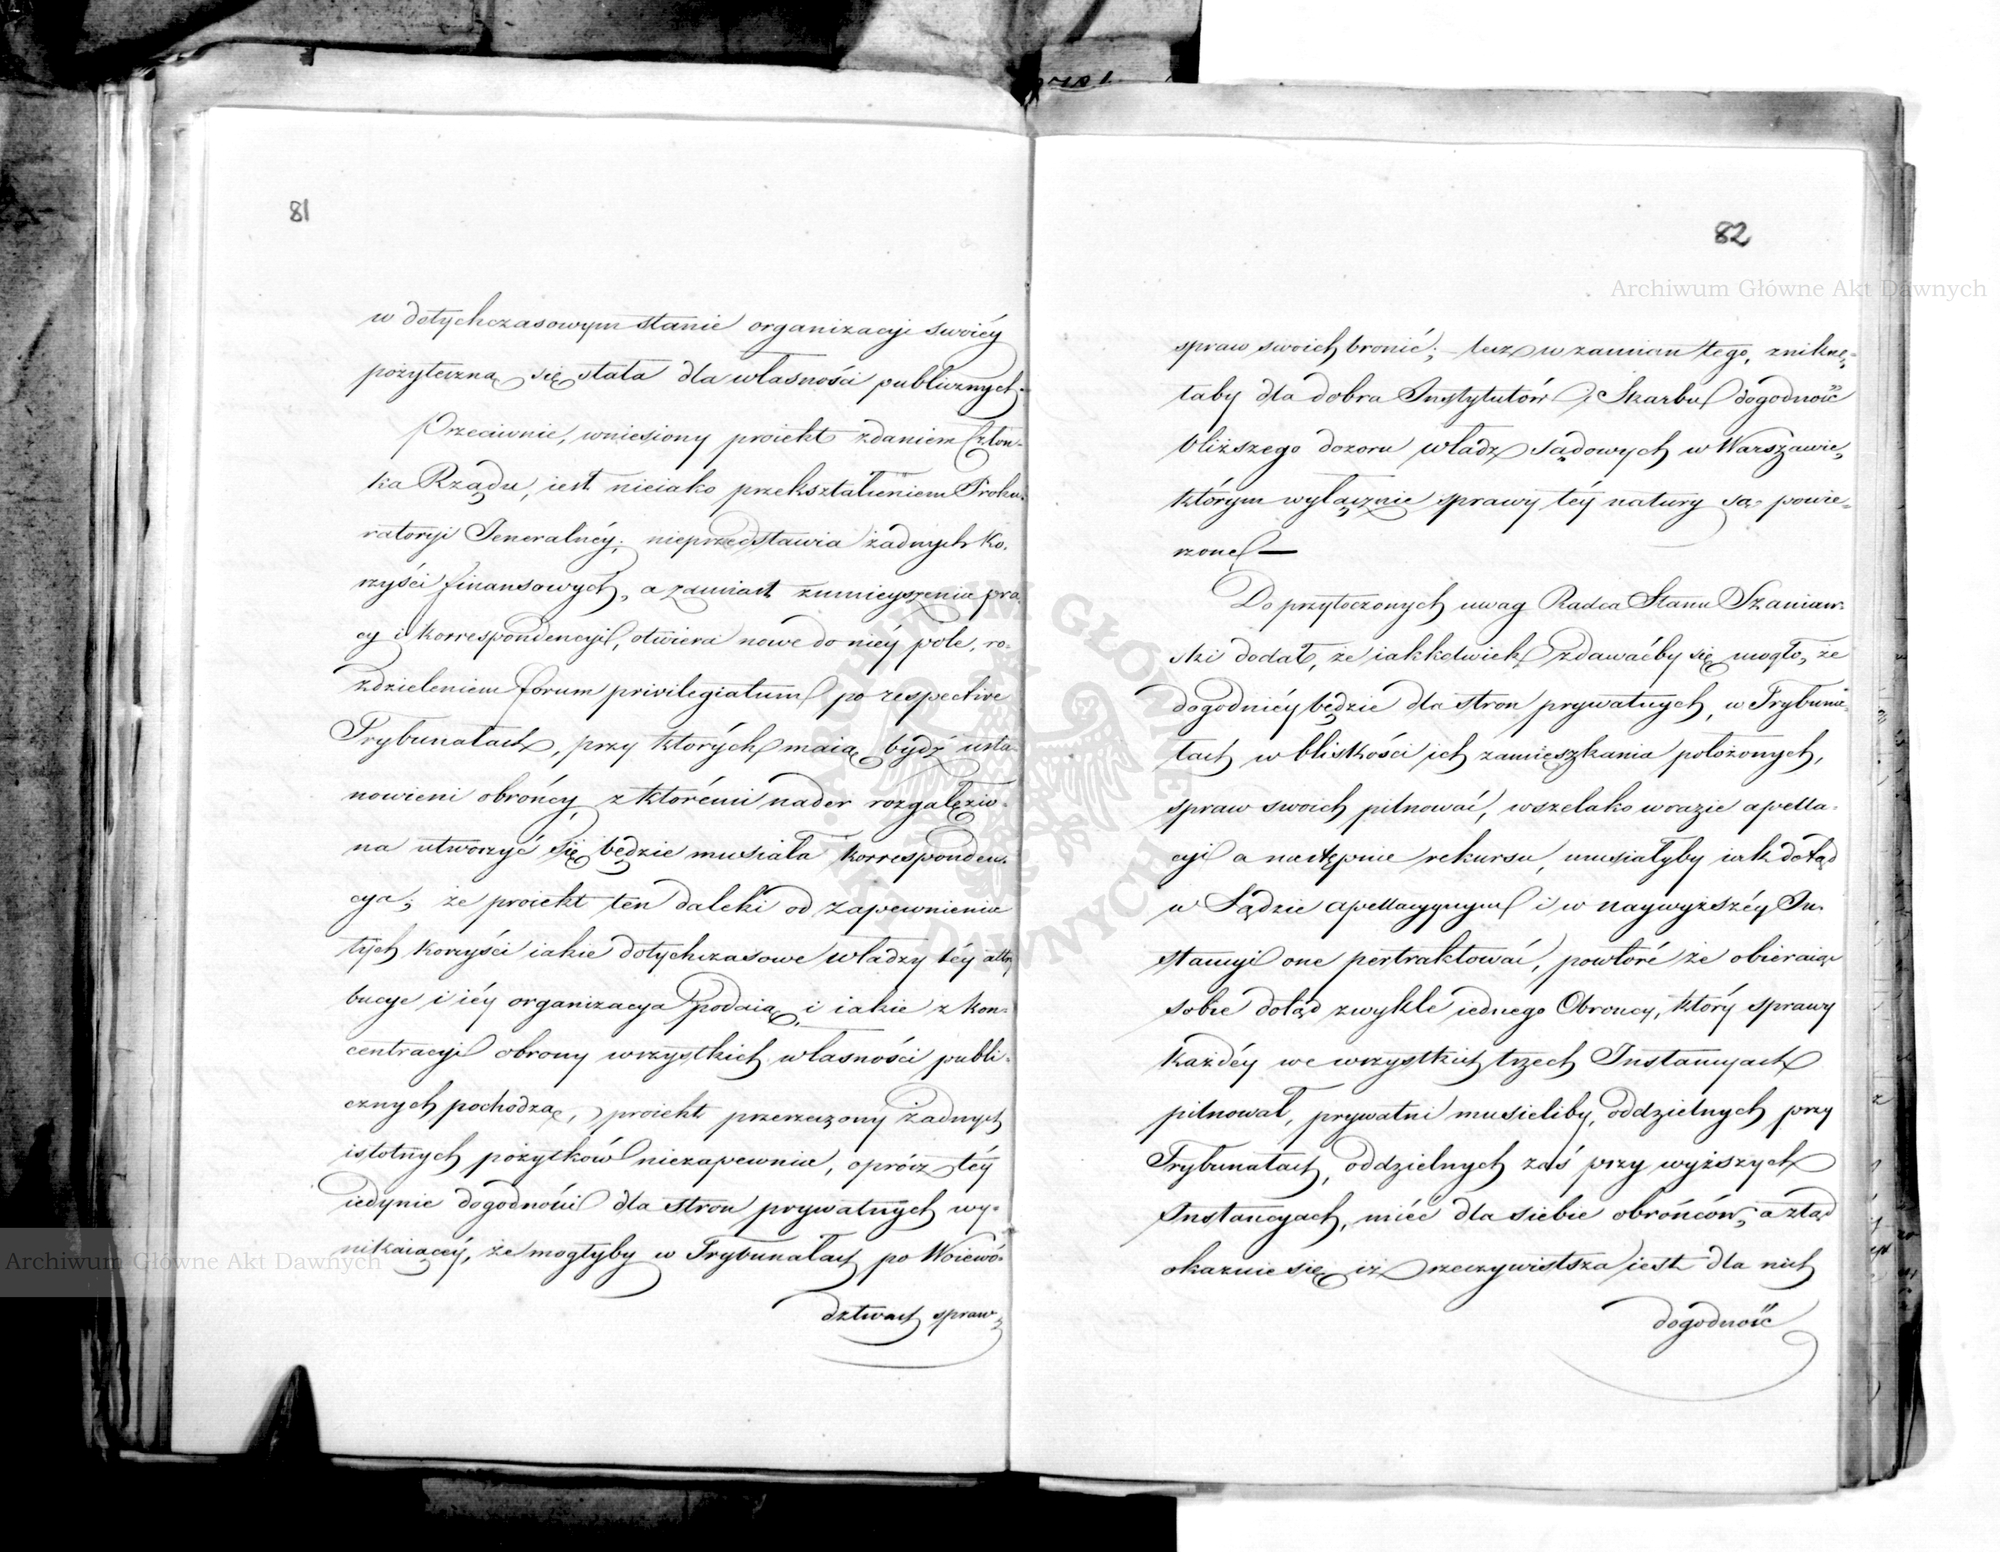 81
w dotychczasowym stanie organizacyi swoiéy
pożyteczną się stała dla własności publicznych.
Przeciwnie, wniesiony proiekt zdaniem Człon-
ka Rządu, iest nieiako przekształceniem Proku-
ratoryi Jeneralnéy; nieprzedstawia żadnych ko-
rzyści finansowych, a zamiast zmnieyszenia pra-
cy i korrespondencyi, otwiera nowe do niéy pole, ro-
zdzieleniem forum privilegiatum po respective
Trybunałach, przy których maią bydź usta-
nowieni obrońcy, z któremi nader rozgałęzio-
na utworzyć się będzie musiała korresponden-
cya; że proiekt ten daleki od zapewnienia
tych korzyści iakie dotychczasowe władzy téy attry
bucye i iéy organizacya podaią, i iakie z kon-
centracyi obrony wszystkich własności publi-
cznych pochodzą, proiekt przerzeczony żadnych
istotnych pożytków niezapewnia, oprócz téy
iedynie dogodności dla stron prywatnych wy-
nikaiącéy, że mogłyby w Trybunałach po Woiewó-
dztwach spraw
82
spraw swoich bronić; lecz w zamian tego, zniknę-
łaby dla dobra Instytutów i Skarbu dogodność
bliższego dozoru władz sądowych w Warszawie,
którym wyłącznie sprawy téy natury są powie-
rzone —
Do przytoczonych uwag Radca Stanu Szaniaw-
ski dodał, że iakkolwiek zdawaćby się mogło, że
dogodniéy będzie dla stron prywatnych, w Trybuna-
łach w bliskości ich zamieszkania położonych,
spraw swoich pilnować, wszelako w razie apella-
cyi a następnie rekursu, musiałyby iak dotąd
w Sądzie apellacyynym i w naywyższéy In-
stancyi one pertraktować, powtóré że obieraiąc
sobie dotąd zwykle iednego Obrońcy, który sprawy
każdéy we wszystkich trzech Instancyach
pilnował, prywatni musieliby, oddzielnych przy
Trybunałach, oddzielnych zaś przy wyższych
Instancyach, mieć dla siebie obrońców, a ztąd
okazuie się iż rzeczywistsza iest dla nich
dogodność
Archiwum Główne Akt Dawnych
Archiwum Główne Akt Dawnych
ARCHIWUM GŁÓWNE AKT DAWNYCH